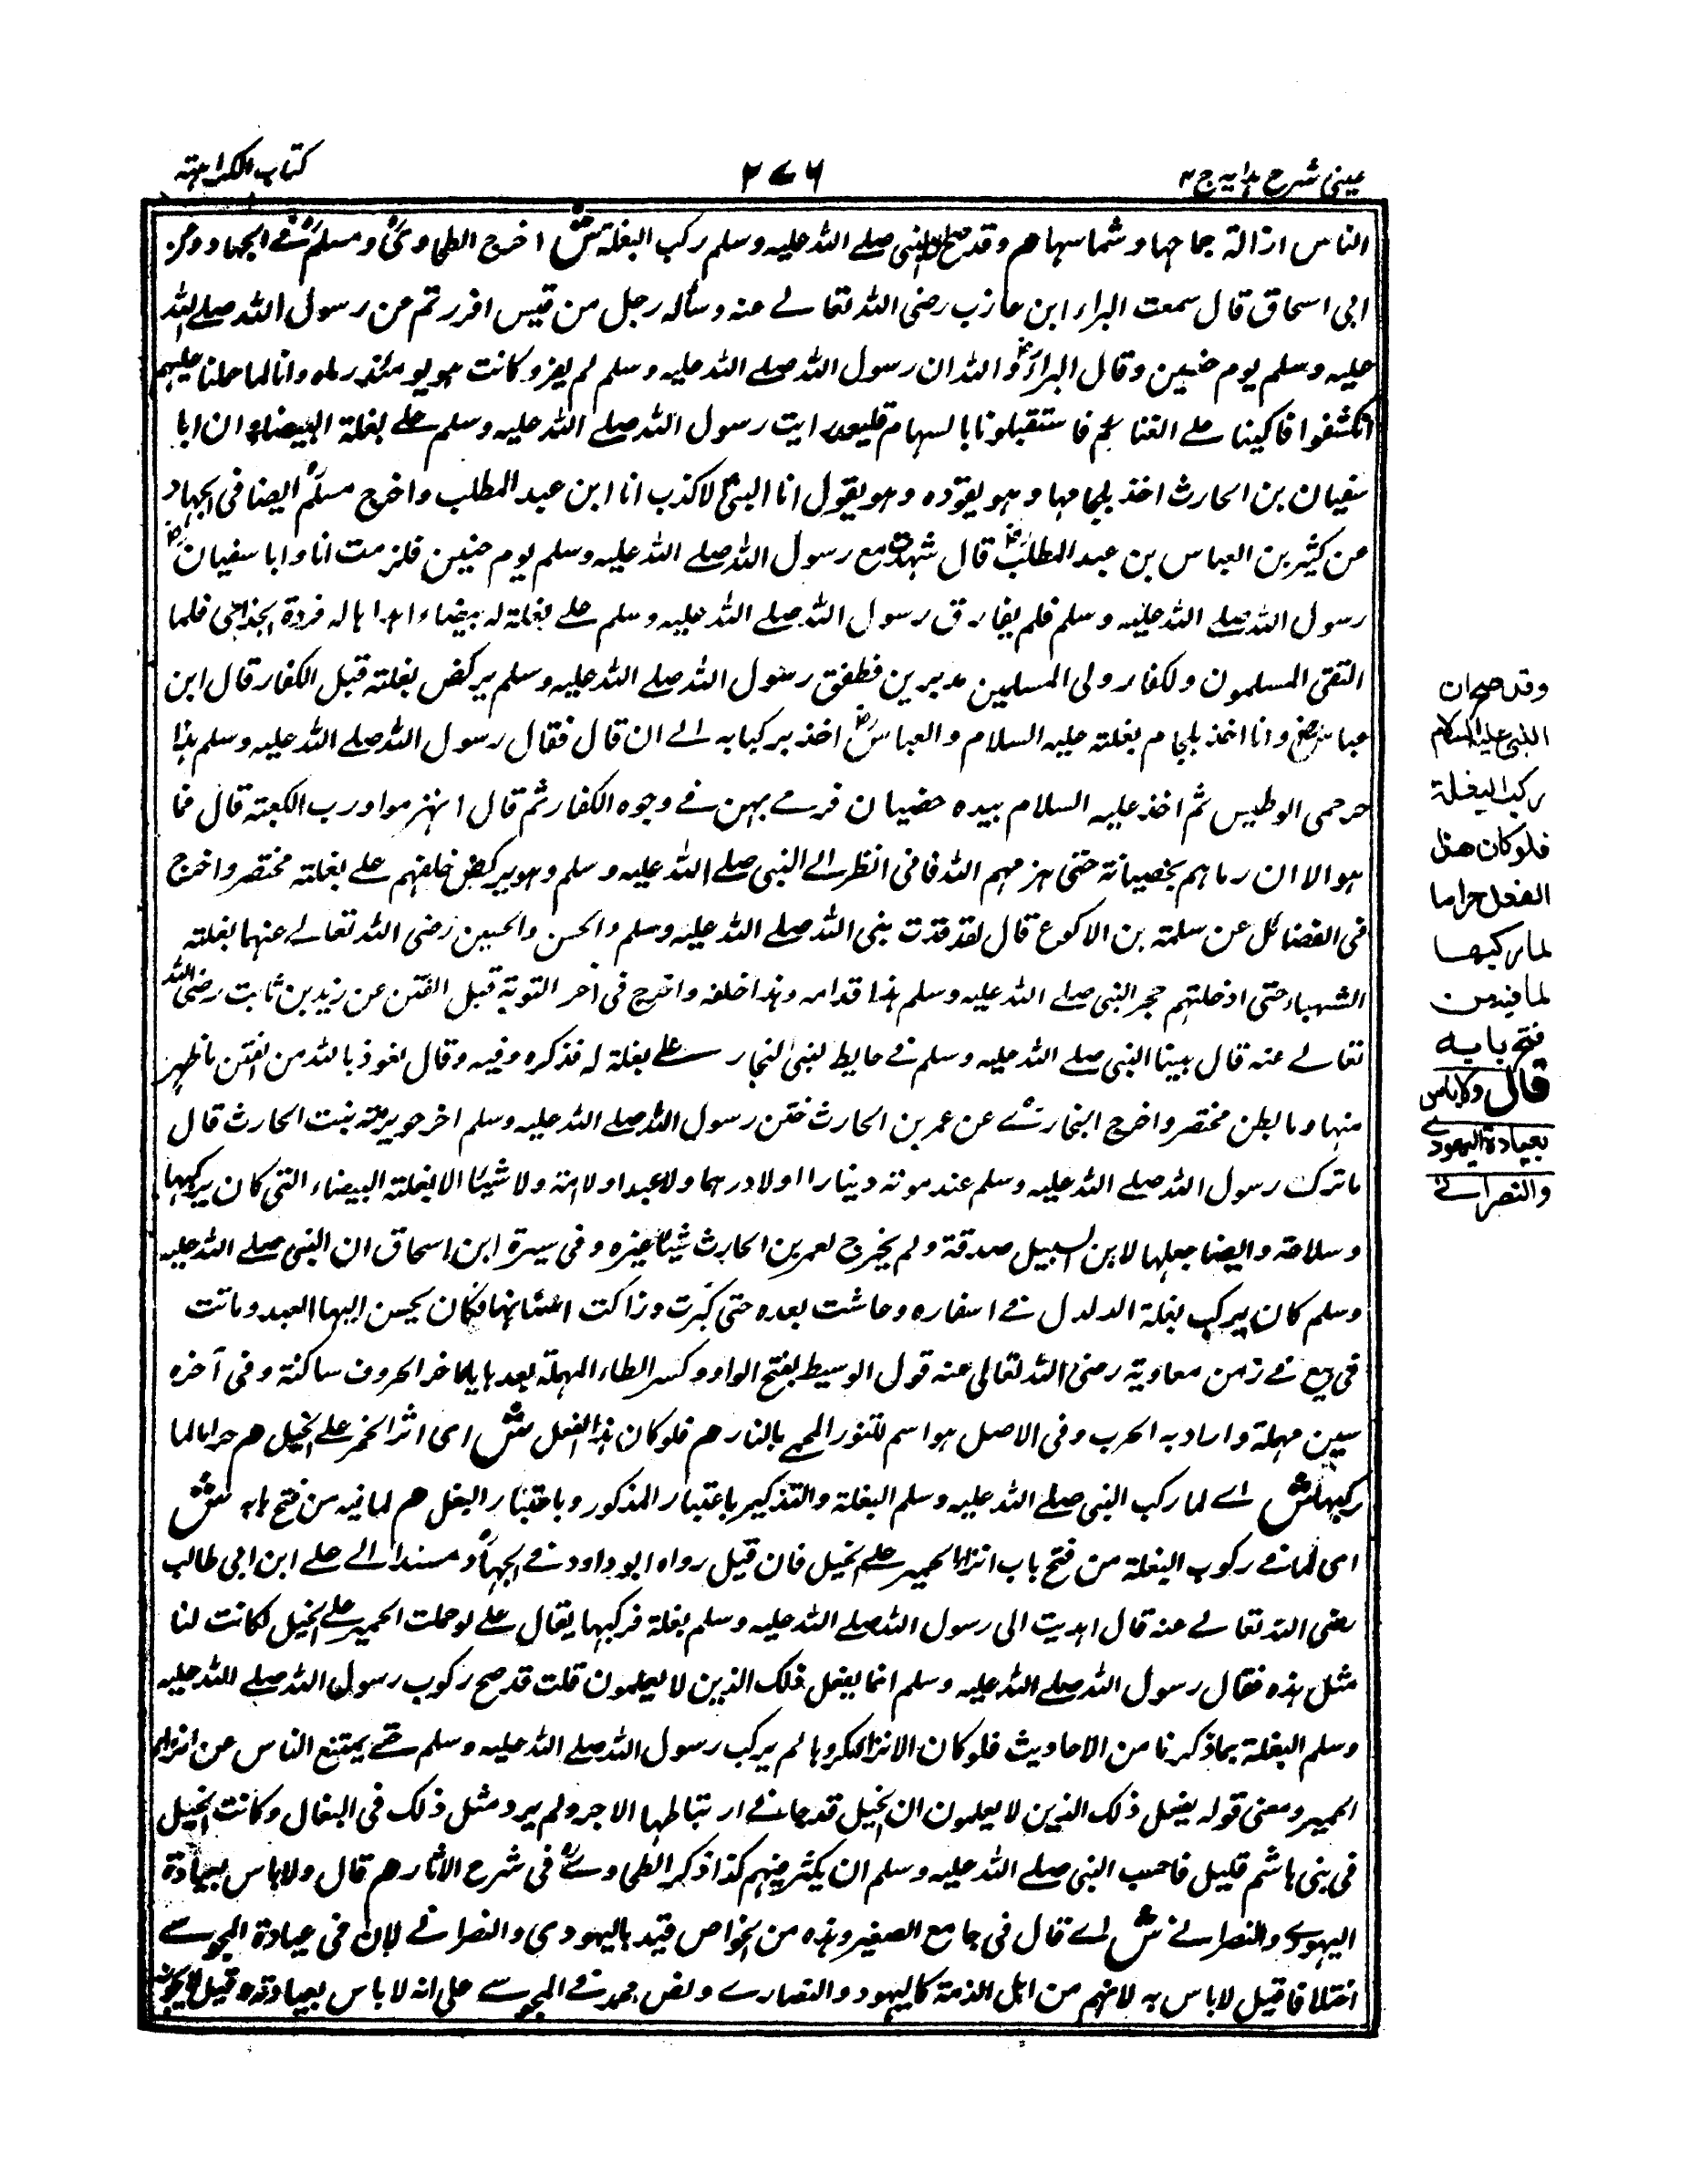 عینی شرح ہدایہ ج ۴
۲۷۶
کتاب الکراہتہ
الناس ازالة جماحہا وشماسہا ھم وقد صح ان النبی صلے اللہ علیہ وسلم رکب البغلة ش اخرج الطحاویؒ ومسلمؒ فے الجہاد وعن
ابی اسحاق قال سمعت البراء ابن عازب رضی اللہ تعالے عنہ وسألہ رجل من قیس افررتم عن رسول اللہ صلے اللہ
علیہ وسلم یوم حنین وقال البراءؓ واللہ ان رسول اللہ صلے اللہ علیہ وسلم لم یفر وکانت ہو یومئذ رماہ وانا لما حملنا علیہم
انکشفوا فاکبینا علے الغنائم فاستقبلونا بالسہام رایت رسول اللہ صلے اللہ علیہ وسلم علے بغلة البیضاء ان ابا
سفیان بن الحارث اخذ بلجامہا وہو یقودہ وہو یقول انا النبی لا کذب انا ابن عبد المطلب واخرج مسلمؒ ایضا فی الجہاد
عن کثیر بن العباس بن عبد المطلبؓ قال شہدت مع رسول اللہ صلے اللہ علیہ وسلم یوم حنین فلزمت انا وابا سفیانؓ
رسول اللہ صلے اللہ علیہ وسلم فلم یفارق رسول اللہ صلے اللہ علیہ وسلم علے بغلة لہ بیضاء اہداہا لہ فردة الجذامی فلما
التقی المسلمون ولکفار ولی المسلمین مدبرین فطفق رسول اللہ صلے اللہ علیہ وسلم یرکض بغلتہ قبل الکفار قال ابن
عباسؓ وانا اخذ بلجام بغلتہ علیہ السلام والعباسؓ اخذ برکابہ الے ان قال فقال رسول اللہ صلے اللہ علیہ وسلم ہذا
حر حمی الوطیس ثم اخذ علیہ السلام بیدہ حصیان فرمے بہن فے وجوہ الکفار ثم قال انہزموا ورب الکعبتہ قال فما
ہو الا ان رماہم بحصیاتہ حتی ہزمہم اللہ فانی انظر الے النبی صلے اللہ علیہ وسلم وہو یرکض خلفہم علے بغلتہ مختصر واخرج
فی الفضائل عن سلمتہ بن الاکوع قال لقد قدت بنی اللہ صلے اللہ علیہ وسلم والحسن والحسین رضی اللہ تعالے عنہما بغلتہ
الشہباء حتی ادخلتہم حجر النبی صلے اللہ علیہ وسلم ہذا قدامہ وہذا خلفہ واخرج فی آخر التوبة قبل الفتن عن زید بن ثابت رضی اللہ
تعالے عنہ قال بینا النبی صلے اللہ علیہ وسلم فے حایط لبنی النجار علے بغلة لہ فذکرہ وفیہ وقال نعوذ باللہ من الفتن ما ظہر
منہا وما بطن مختصر واخرج البخارےؒ عن عمر بن الحارث ختن رسول اللہ صلے اللہ علیہ وسلم اخر جویریتہ بنت الحارث قال
ما ترک رسول اللہ صلے اللہ علیہ وسلم عند موتہ دینارا اولا درہما ولا عبدا ولا امتہ ولا شیئا الا بغلتہ البیضاء التی کان یرکبہا
وسلاحہ وایضا جعلہا لابن السبیل صدقة ولم یخرج لعمر بن الحارث شیئا غیرہ وفی سیرة ابن اسحاق ان النبی صلے اللہ علیہ
وسلم کان یرکب بغلة الدلدل فے اسفارہ وعاشت بعدہ حتی کبرت وزاکت اسنانہا فکان یحسن الیہا العبد وماتت
فے زمن معاویة رضی اللہ تعالی عنہ قول الوسیط بفتح الواو وکسر الطاء المہملہ بعدہا یاء اخر الحروف ساکنة وفی آخرہ
سین مہملة واراد بہ الحرب وفی الاصل ہو اسم للتنور المحمے بالنار ھم فلو کان ہذا الفعل ش ای اثر الحمر علے الخیل ھم حراما لما
رکبہا ش اے لما رکب النبی صلے اللہ علیہ وسلم البغلة والتذکیر باعتبار المذکور وباعتبار البغل ھم لما فیہ من فتح بابہ ش
ای لما فے رکوب البغلة من فتح باب انزاء الحمیر علے الخیل فان قیل رواہ ابو داود فے الجہاد مسندا الے علے ابن ابی طالب
رضی اللہ تعالے عنہ قال اہدیت الی رسول اللہ صلے اللہ علیہ وسلم بغلة فرکبہا یقال علے لو حملت الحمیر علے الخیل لکانت لنا
مثل ہذہ فقال رسول اللہ صلے اللہ علیہ وسلم انما یفعل ذلک الذین لا یعلمون قلت قد صح رکوب رسول اللہ صلے اللہ علیہ
وسلم البغلة بما ذکرنا من الاحادیث فلو کان الانزا مکروہا لم یرکب رسول اللہ صلے اللہ علیہ وسلم حتے یمتنع الناس عن انزاء
الحمیر ومعنی قولہ یفعل ذلک الذین لا یعلمون ان الخیل قد جاء فے ارتباطہا الاجر ولم یرد مثل ذلک فی البغال وکانت الخیل
فی بنی ہاشم قلیل فاحب النبی صلے اللہ علیہ وسلم ان یکثر فیہم کذا ذکر الطحاوےؒ فی شرح الاثار ھم قال ولا باس بعیادة
الیہودے والنصرانے ش اے قال فی جامع الصغیر وہذہ من الخواص قید بالیہودی والنصرانے لان فی عیادة المجوسے
اختلافا قیل لا باس بہ لانہم من اہل الذمة کالیہود والنصارے ونص محمد فے المجوسے علی انہ لا باس بعیادتہ وقیل لا یجوز
وقد صح ان
النبی علیہ السلام
رکب البغلة
فلو کان ھذا
الفعل حراما
لما رکبھا
لما فیہ من
فتح بابہ
قال ولا باس
بعیادة الیھودے
والنصرانے